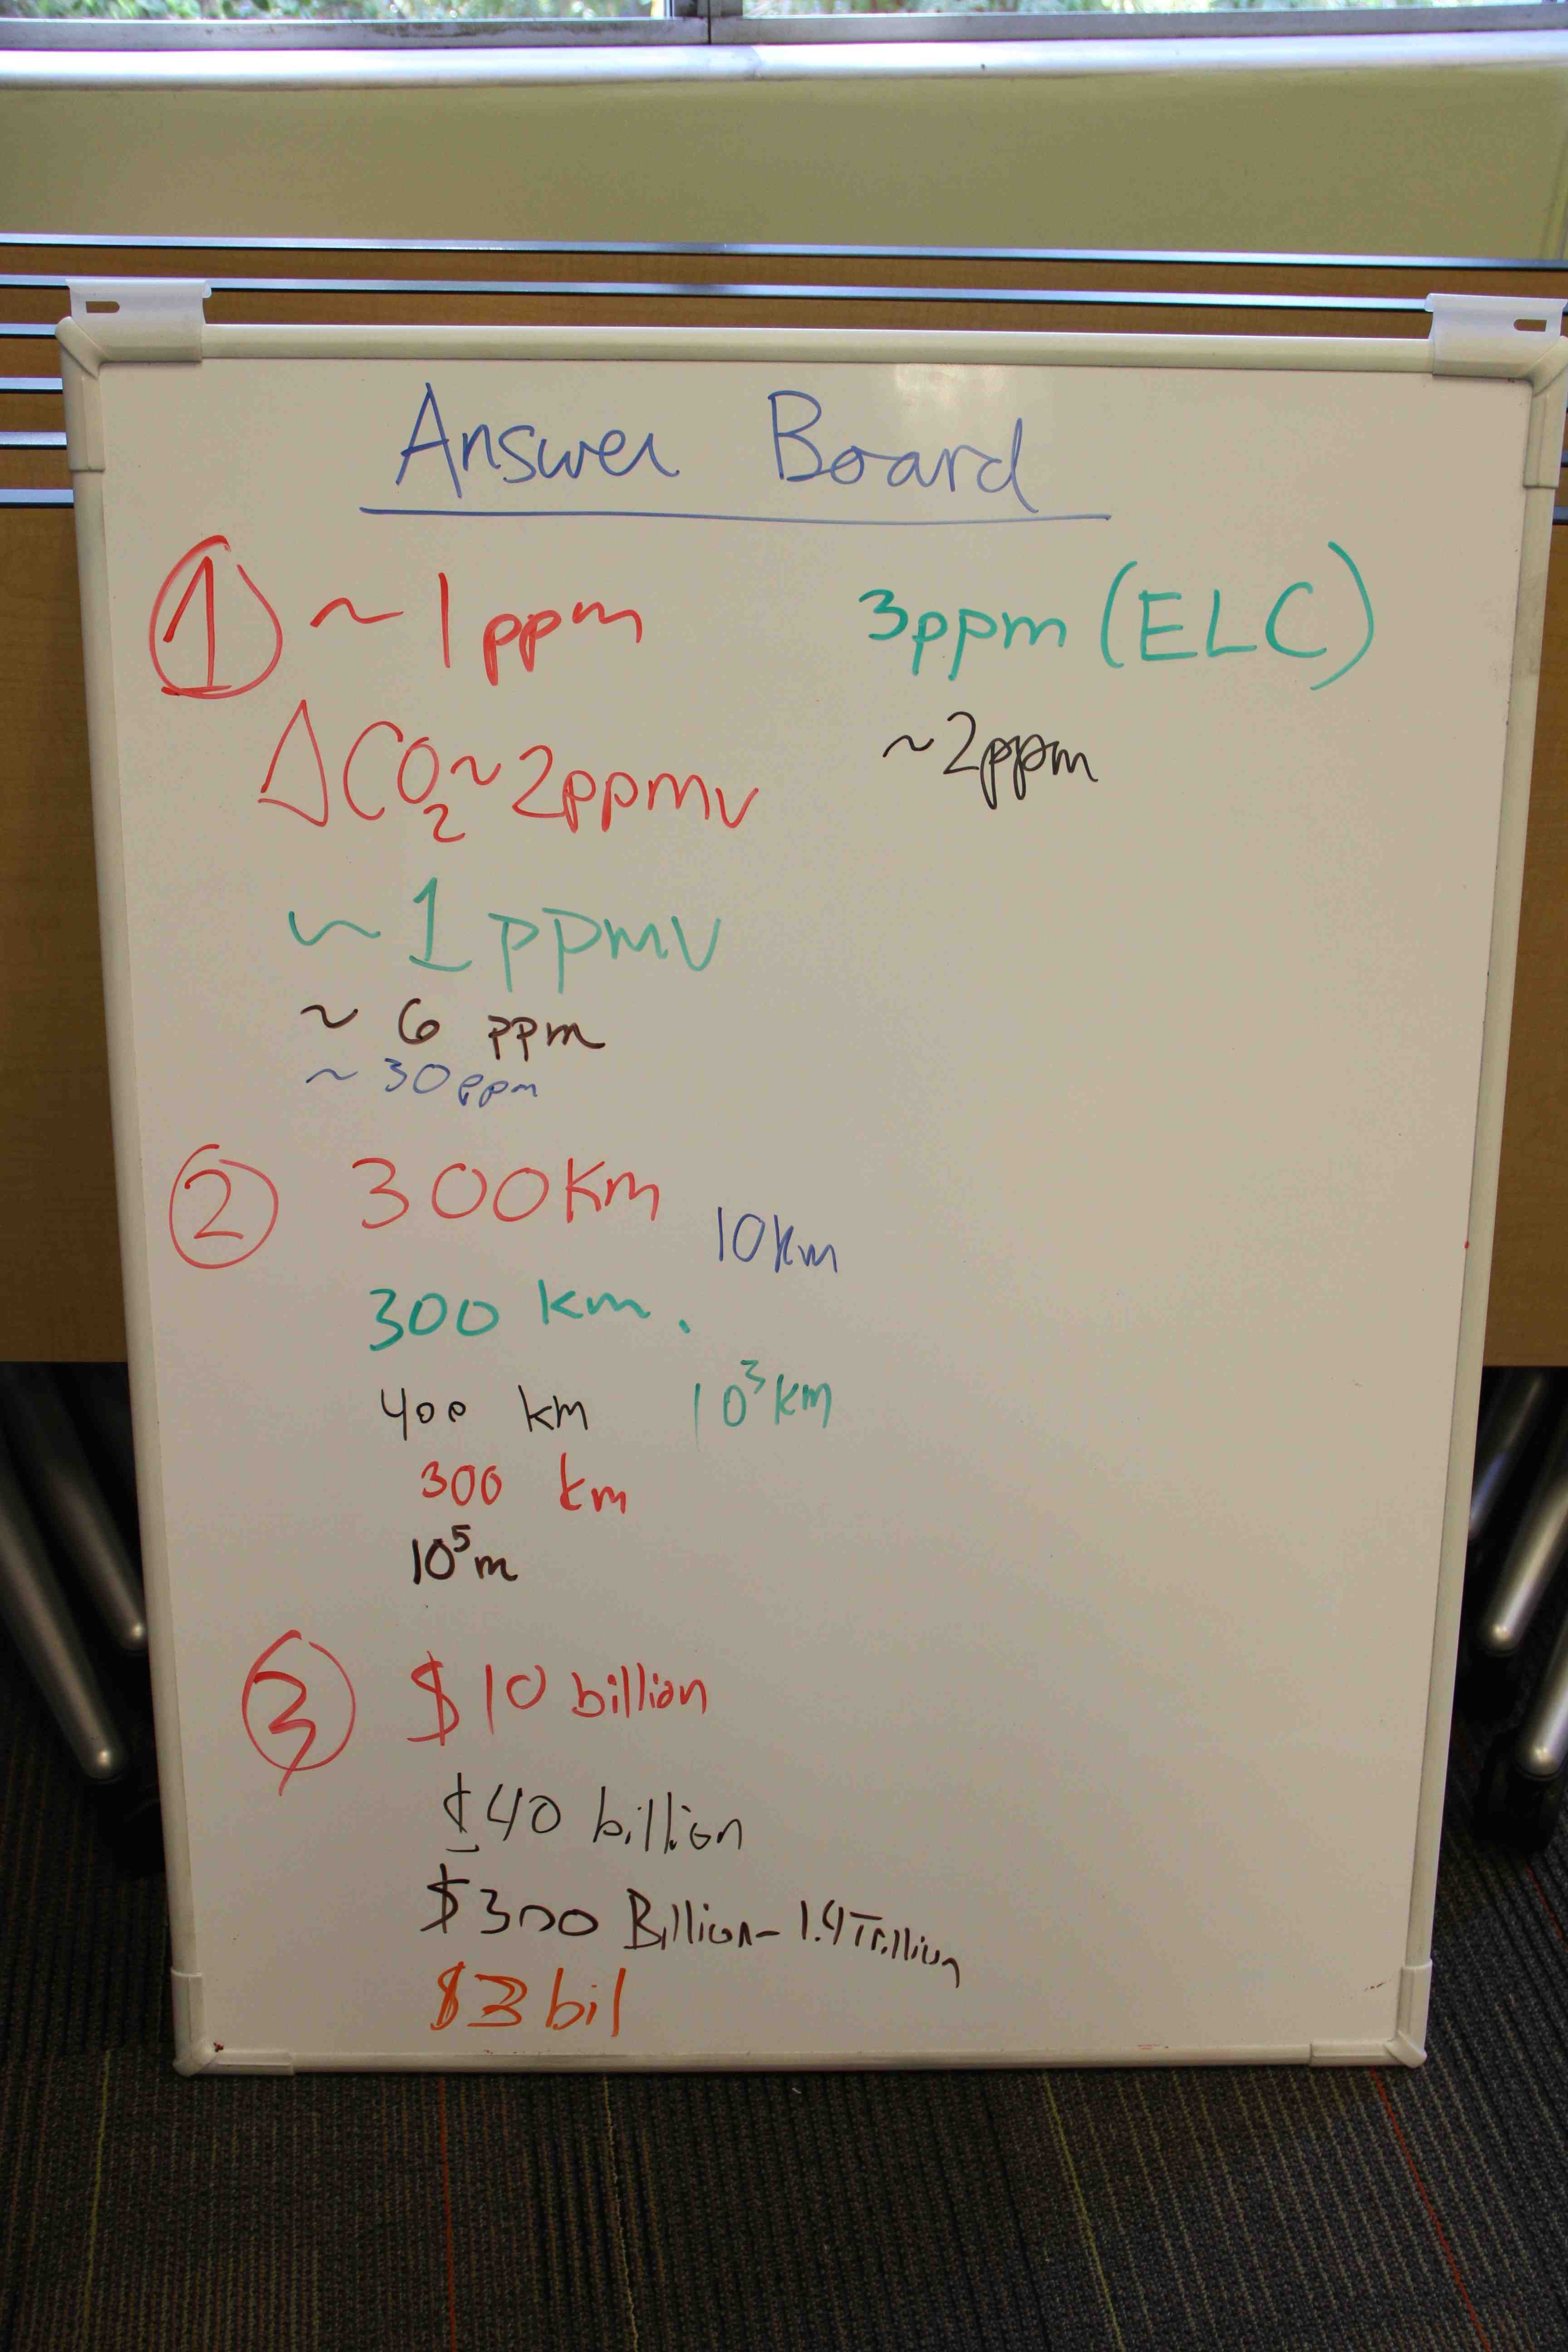 Answer Board
① ~ 1ppm 3ppm (ELC)
ΔCO₂ ~ 2ppmv ~2ppm
~ 1 ppmv
~ 6 ppm
~ 30ppm
② 300Km 10km
300 km.
400 km 10³km
300 km
10⁵m
③ $10 billion
$40 billion
$300 Billion - 1.4 Trillion
$3 bil